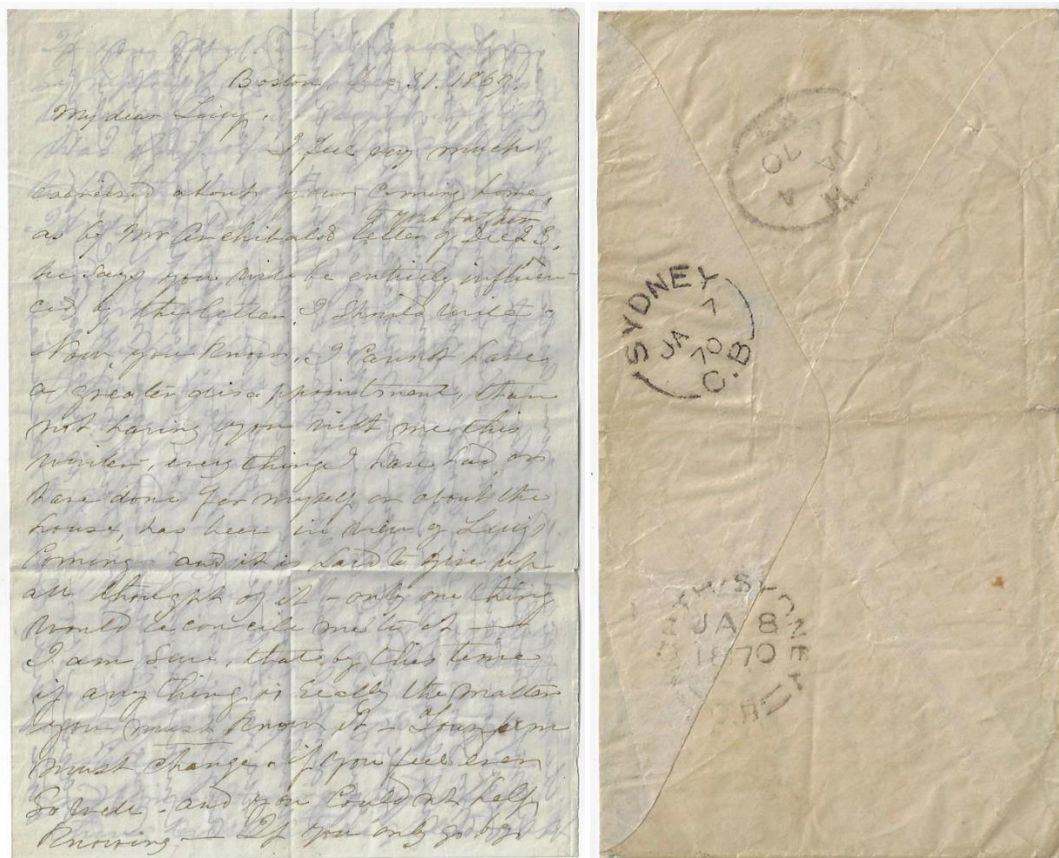 Boston, Dec 31. 1869.
My dear Lucy,
I feel very much
exercised about your coming home,
to your father
as by Mr Archibald's letter of Dec 23,
he says you will be entirely influen-
ced by the letter I should write.
Now you know, I cannot have
a greater disappointment, than
not having you with me this
winter, every thing I have had, or
have done for myself or about the
house, has been in view of Lucy's
coming - and it is hard to give up
all thought of it - only one thing
would reconcile me to it -
I am sure, that by this time
if any thing is really the matter
you must know it - Your
must change, if you feel ever
so well - and you couldn't help
knowing - If you only go by
H
JA 4
70
SYDNEY
JA 7
70
C.B
NORTH SYDNEY
JA 8
1870